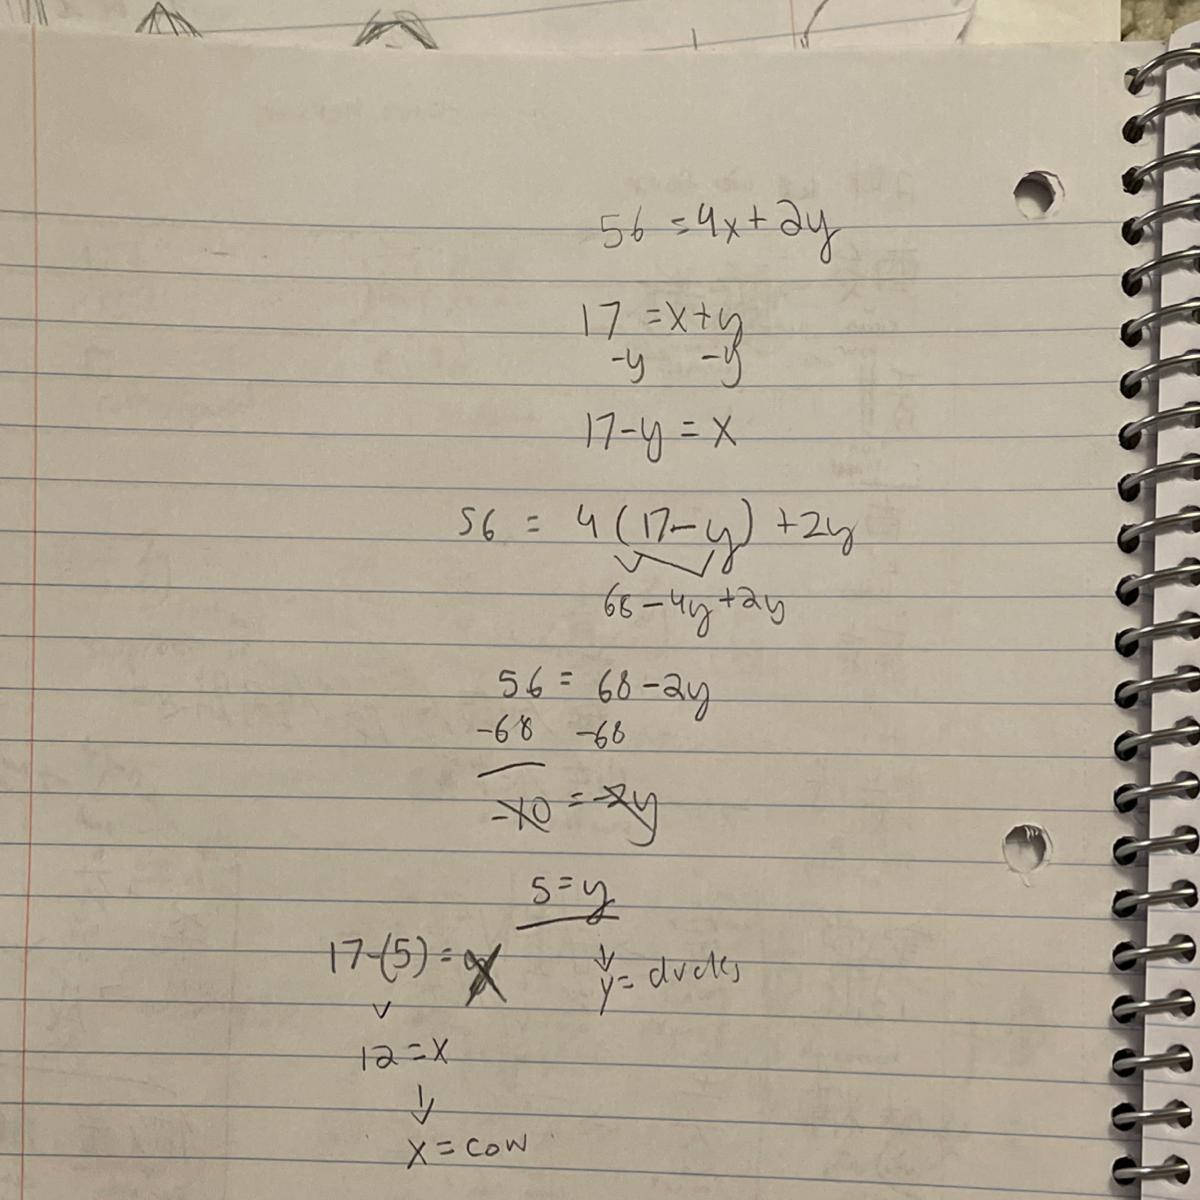 56 = 4x + 2y
17 = x + y
-y -y
17 - y = x
56 = 4 (17 - y) + 2y
68 - 4y + 2y
56 = 68 - 2y
-68 -68
-10 = -2y
5 = y
17 - (5) = x
y = ducks
12 = x
x = cow